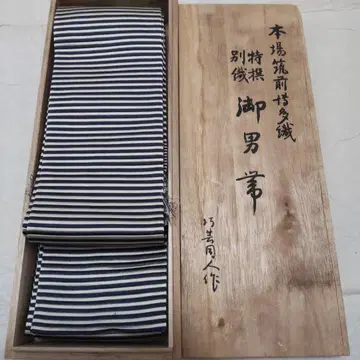 本場筑前博多織
特撰
別織
御男帯
同人作